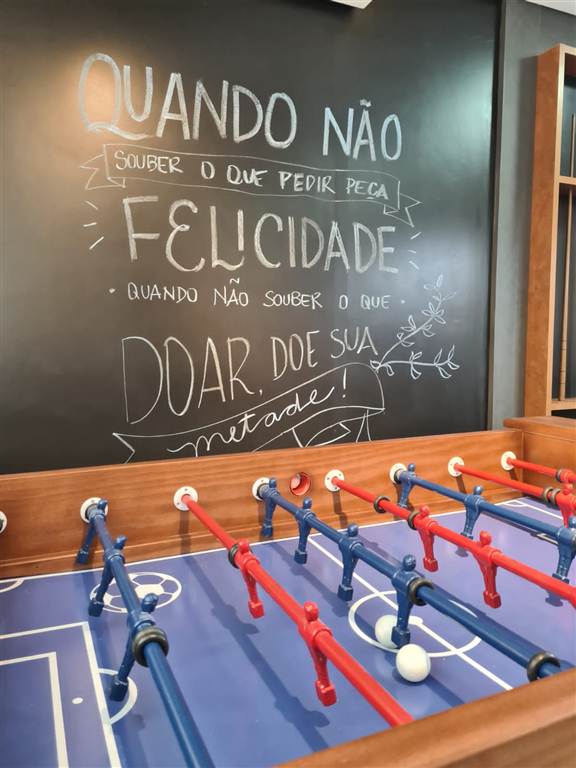 QUANDO NÃO
SOUBER O QUE PEDIR PEÇA
FELICIDADE
QUANDO NÃO SOUBER O QUE
DOAR, DOE SUA
metade!